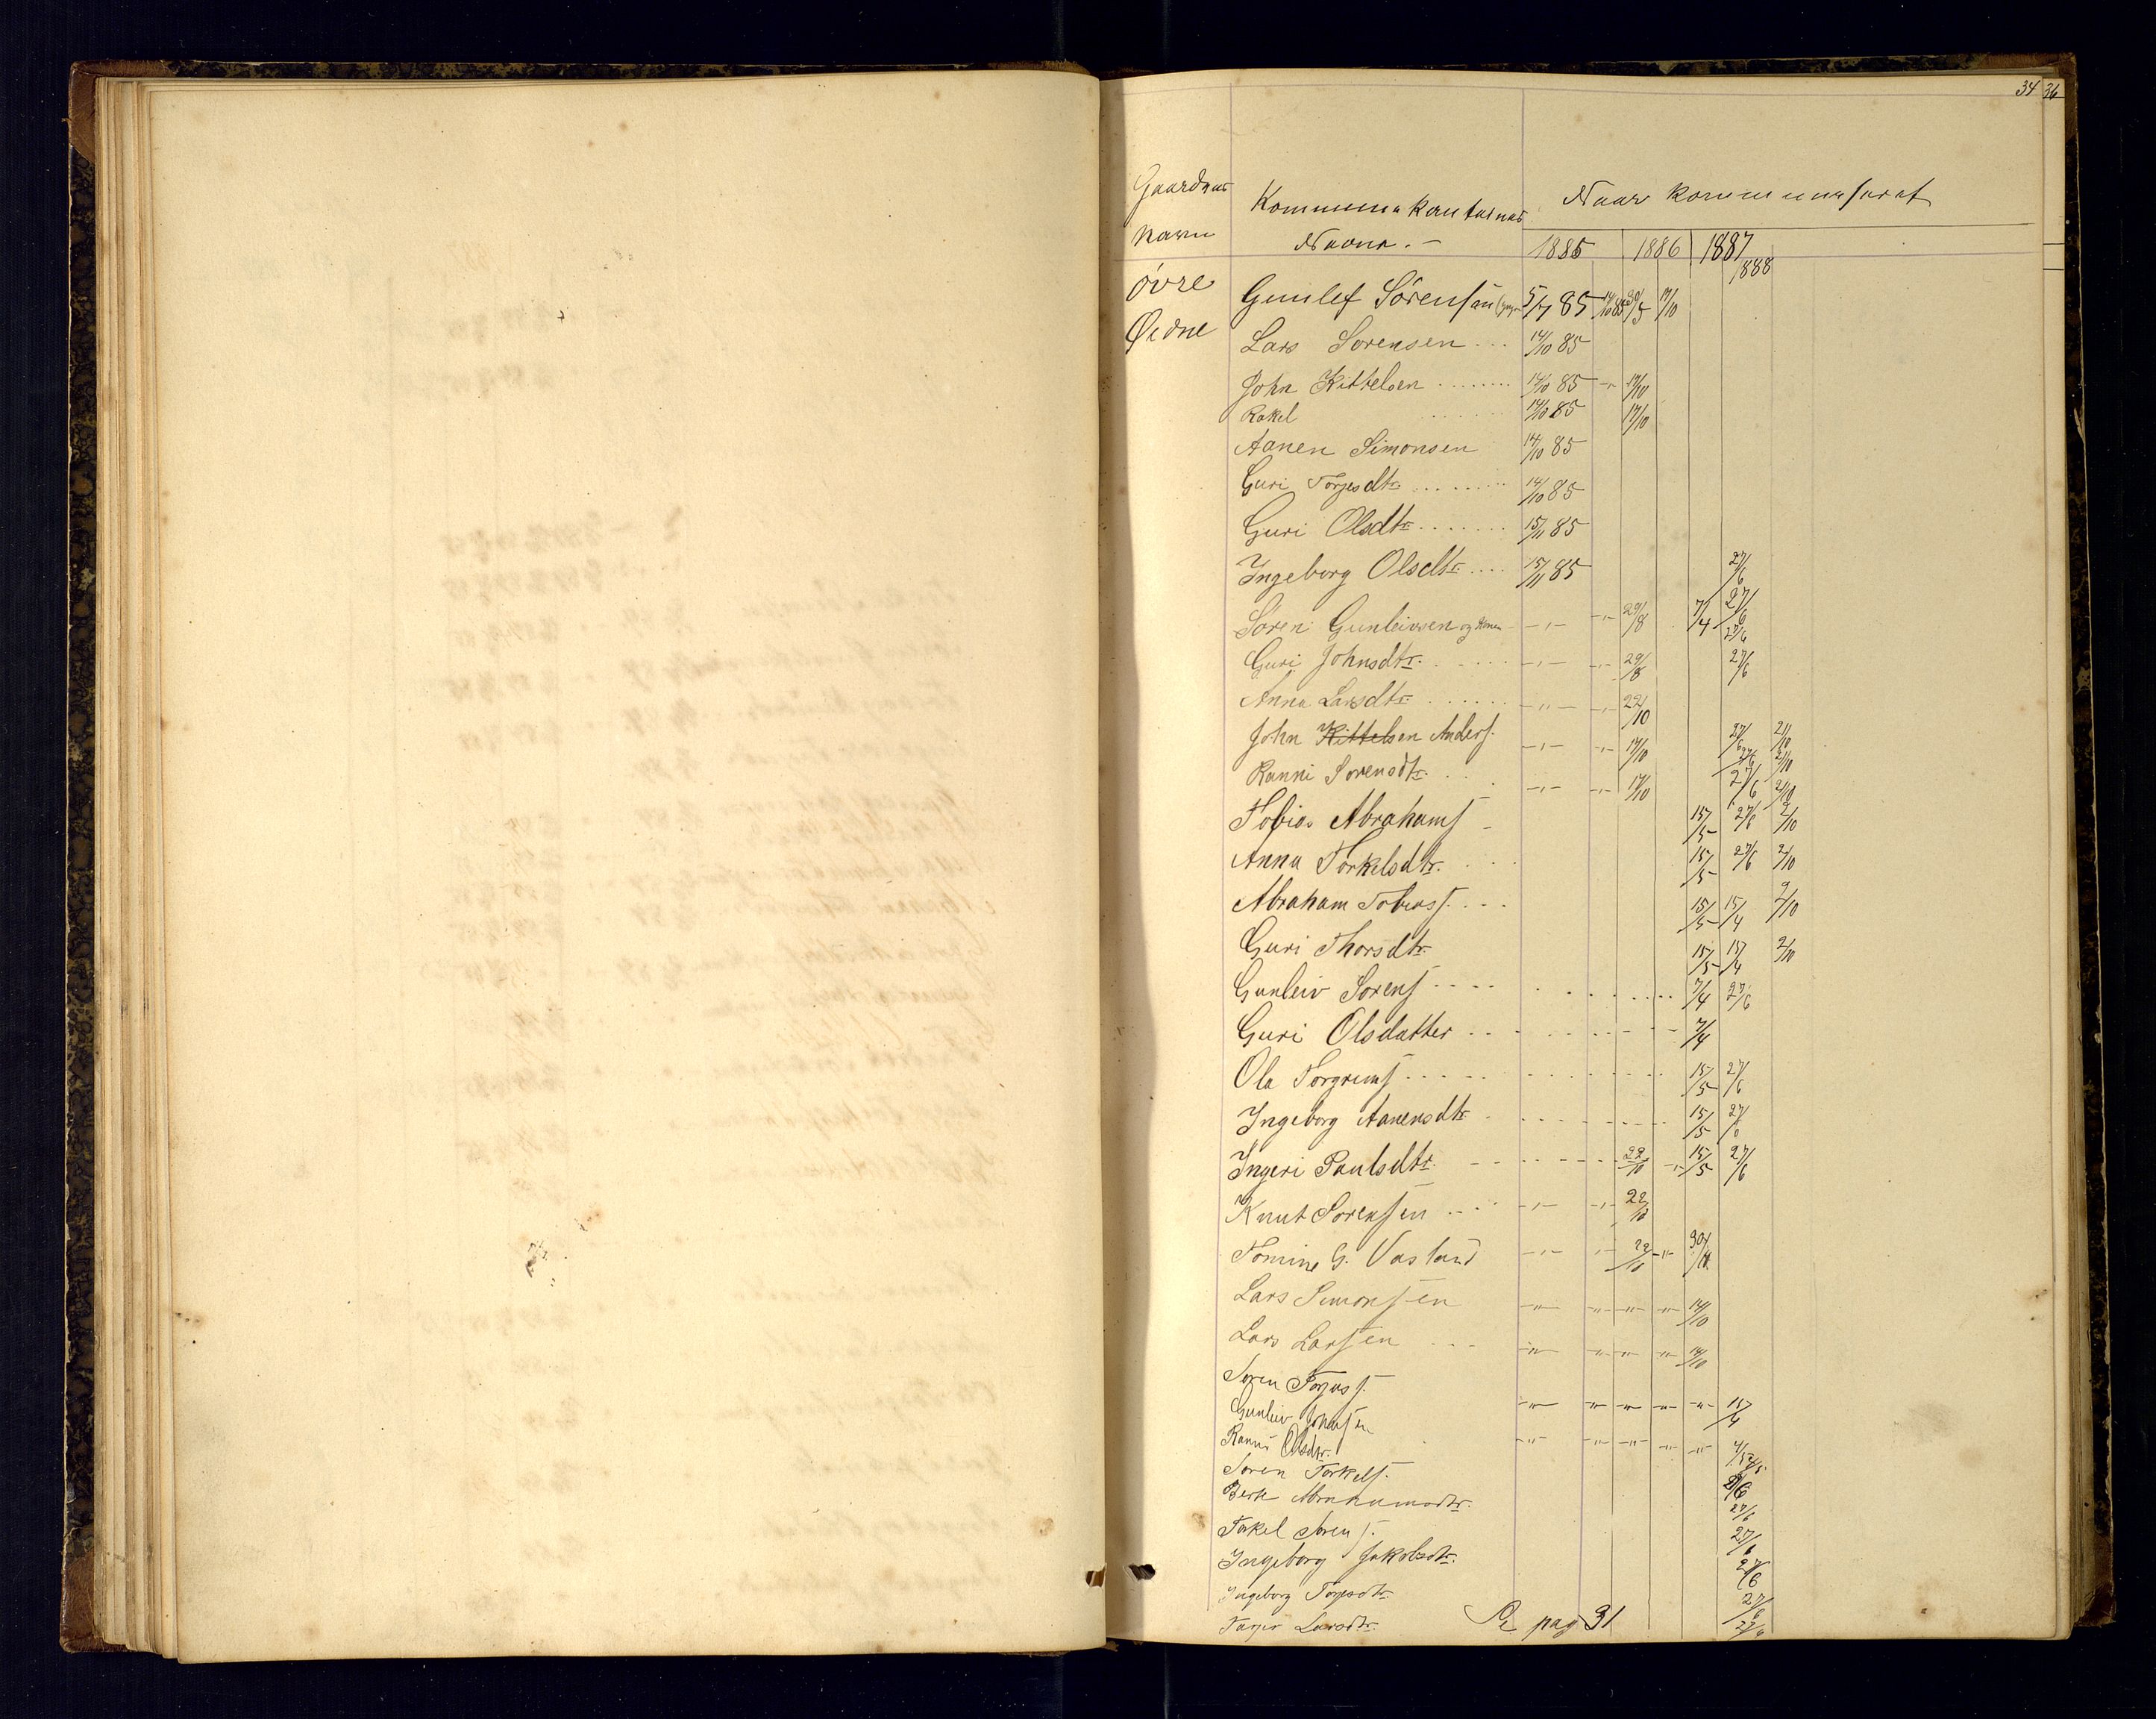 34 36
Gaardnes Navn
Kommunikanternes Navne. -
Naar kommuniseret
1885 1886 1887 1888
övre Øidne
Gunlef Sörensen 5/7 85 14/10 85 30/5 17/10
Lars Sorensen ... 14/10 85
John Kittelsen ........ 14/10 85 -"- 17/10
Rakel 14/10 85 17/10
Aanen Simonsen 14/10 85
Guri Torjesdtr. ........ 14/10 85
Guri Olsdtr ....... 15/11 85
Ingeborg Olsdtr .... 15/11 85 27/6
Sören Gunleivsen og Konen -"- -"- 29/8 7/4 27/6 27/6
Guri Johnsdtr. ..... -"- -"- 29/8 27/6
Anna Larsdtr ...... -"- -"- 22/10
John Kittelsen Anders. -"- -"- 17/10 27/6 2/10
Ranni Sorensdtr. -"- -"- 17/10 27/6 2/10
Tobias Abrahams 15/5 27/6 2/10
Anna Torkelsdtr. 15/5 27/6 2/10
Abraham Tobiass. ... 15/5 15/4 2/10
Guri Thorsdtr. 15/5 15/4 2/10
Gunleiv Sorens .... 7/4 27/6
Guri Olsdatter .. 7/4
Ola Torgrims ..... 15/5 27/6
Ingeborg Aanensdtr. 15/5 27/6
Ingeri Paulsdtr. 22/10 -"- 15/5 27/6
Knut Sorensen .... -"- -"- 22/10
Tomine G. Vasland -"- -"- 22/10 -"- 30/10
Lars Simonsen -"- -"- -"- -"- 14/10
Lars Larsen ... -"- -"- -"- -"- 14/10
Soren Torjuss. -"- -"- -"- -"- -"- 15/4
Gunleiv Johnsen
Ranni Olsdtr. -"- -"- -"- -"- -"-
Soren Torkels.
Berte Abrahamsdtr. 27/6
Torkel Sorens. 27/6
Ingeborg Jakobsdtr. 27/6
Ingeborg Torjesdtr. 27/6
Larsdtr. Se pag 31 27/6